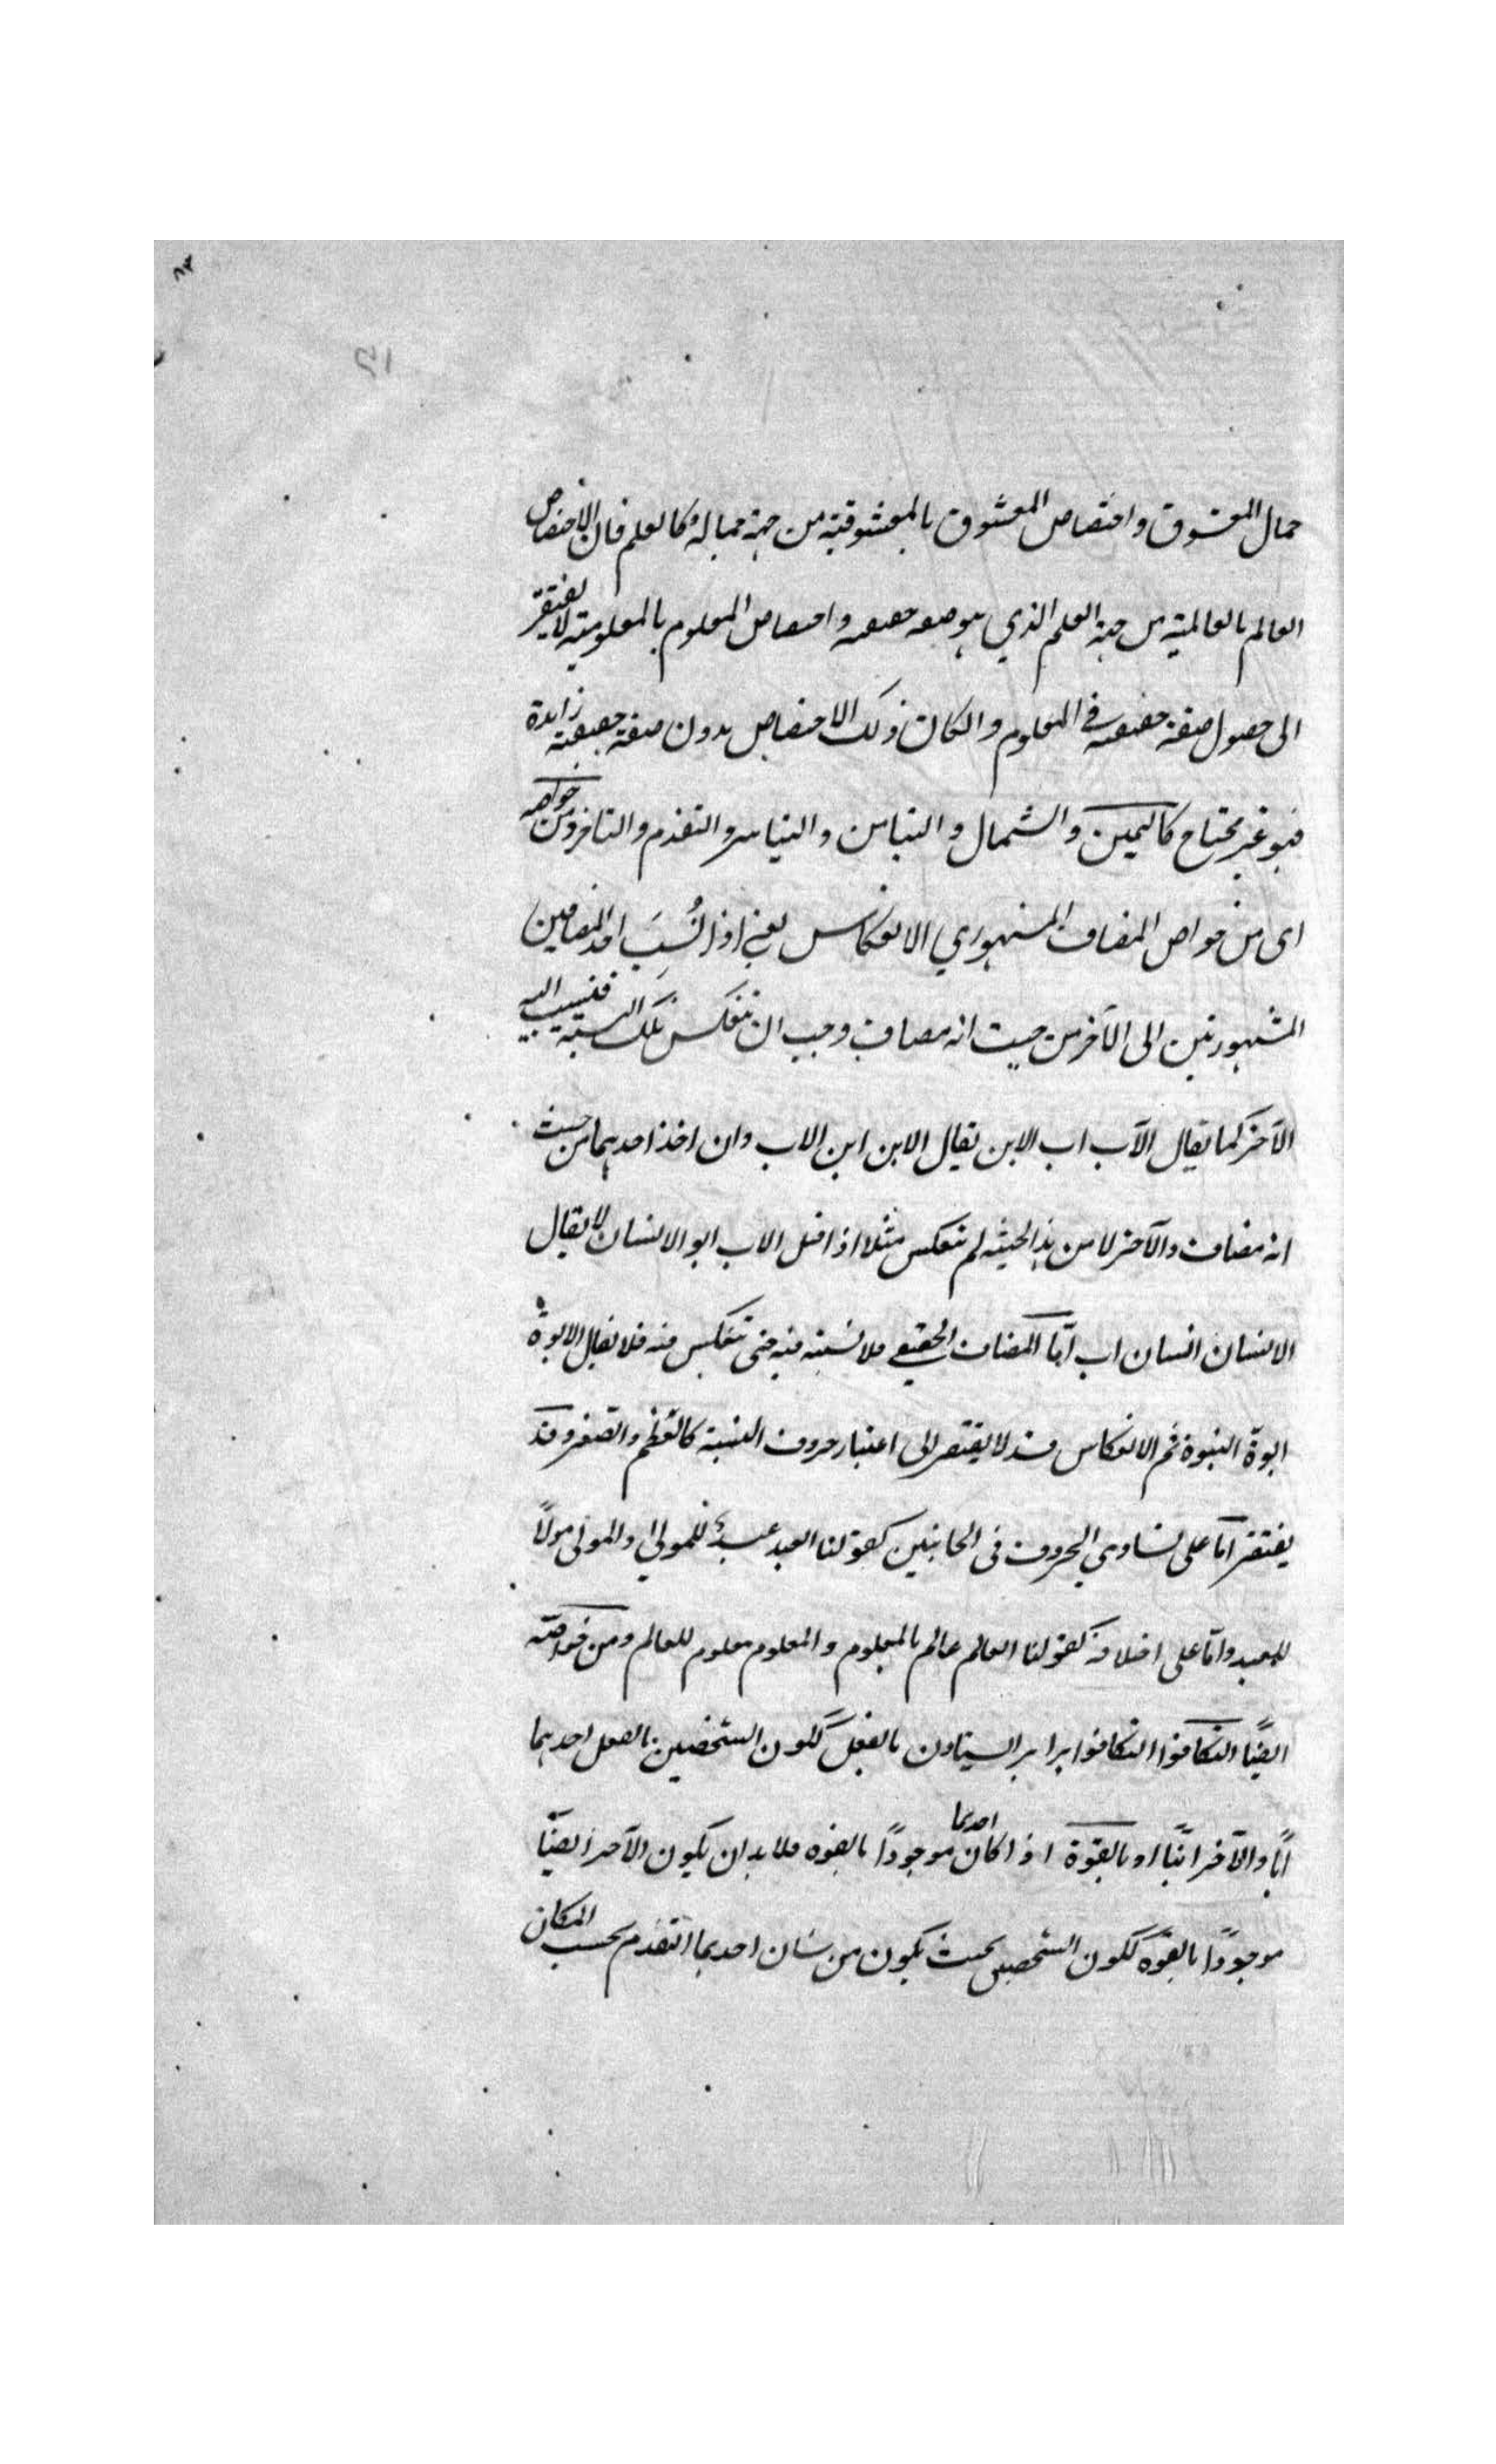 جمال المعشوق واختصاص المعشوق بالمعشوقية من جهة جماله وكالعلم فان الاختصاص
العالم بالعالمية من جهة العلم الذي هو صفة حقيقية واختصاص المعلوم بالمعلومية لا يفتقر
الى حصول صفة حقيقية في المعلوم والكان ذلك الاختصاص بدون صفة حقيقية زايدة
فهو غير محتاج كاليمين والشمال والتيامن والتياسر والتقدم والتاخر ومن خواصه
اى من خواص المضاف المشهوري الانعكاس يعني اذا نُسِبَ احد المضافين
المشهورين الى الآخر من حيث انه مضاف وجب ان تنعكس تلك النسبة فتنسب اليه
الآخر كما يقال الآب اب الابن يقال الابن ابن الاب وان اخذ احدهما من حيث
انه مضاف والآخر لا من هذا الحيثية لم تنعكس مثلا اذا قيل الاب ابو الانسان لا يقال
الانسان انسان اب امّا المضاف الحقيقي فلا نسبة فيه حتى تنعكس منه فلا يقال الابوة
ابوة البنوة ثم الانعكاس قد لا يفتقر الى اعتبار حروف النسبة كالعظم والصغر وقد
يفتقر امّا على تساوي الحروف في الجانبين كقولنا العبد عبدٌ للمولى والمولى مولاً
للعبد وامّا على اختلافه كقولنا العالم عالم بالمعلوم والمعلوم معلوم للعالم ومن خواصّه
ايضًا التكافؤ التكافؤ ابرابر ايستادن بالفعل ككون الشخصين بالفعل احدهما
ابًا والآخر ابنًا او بالقوّة اذا كان احدهما موجودًا بالقوه فلا بد ان يكون الآخر ايضًا
موجودًا بالقوّة ككون الشخصين بحيث يكون من شان احدهما التقدم بحسب المكان